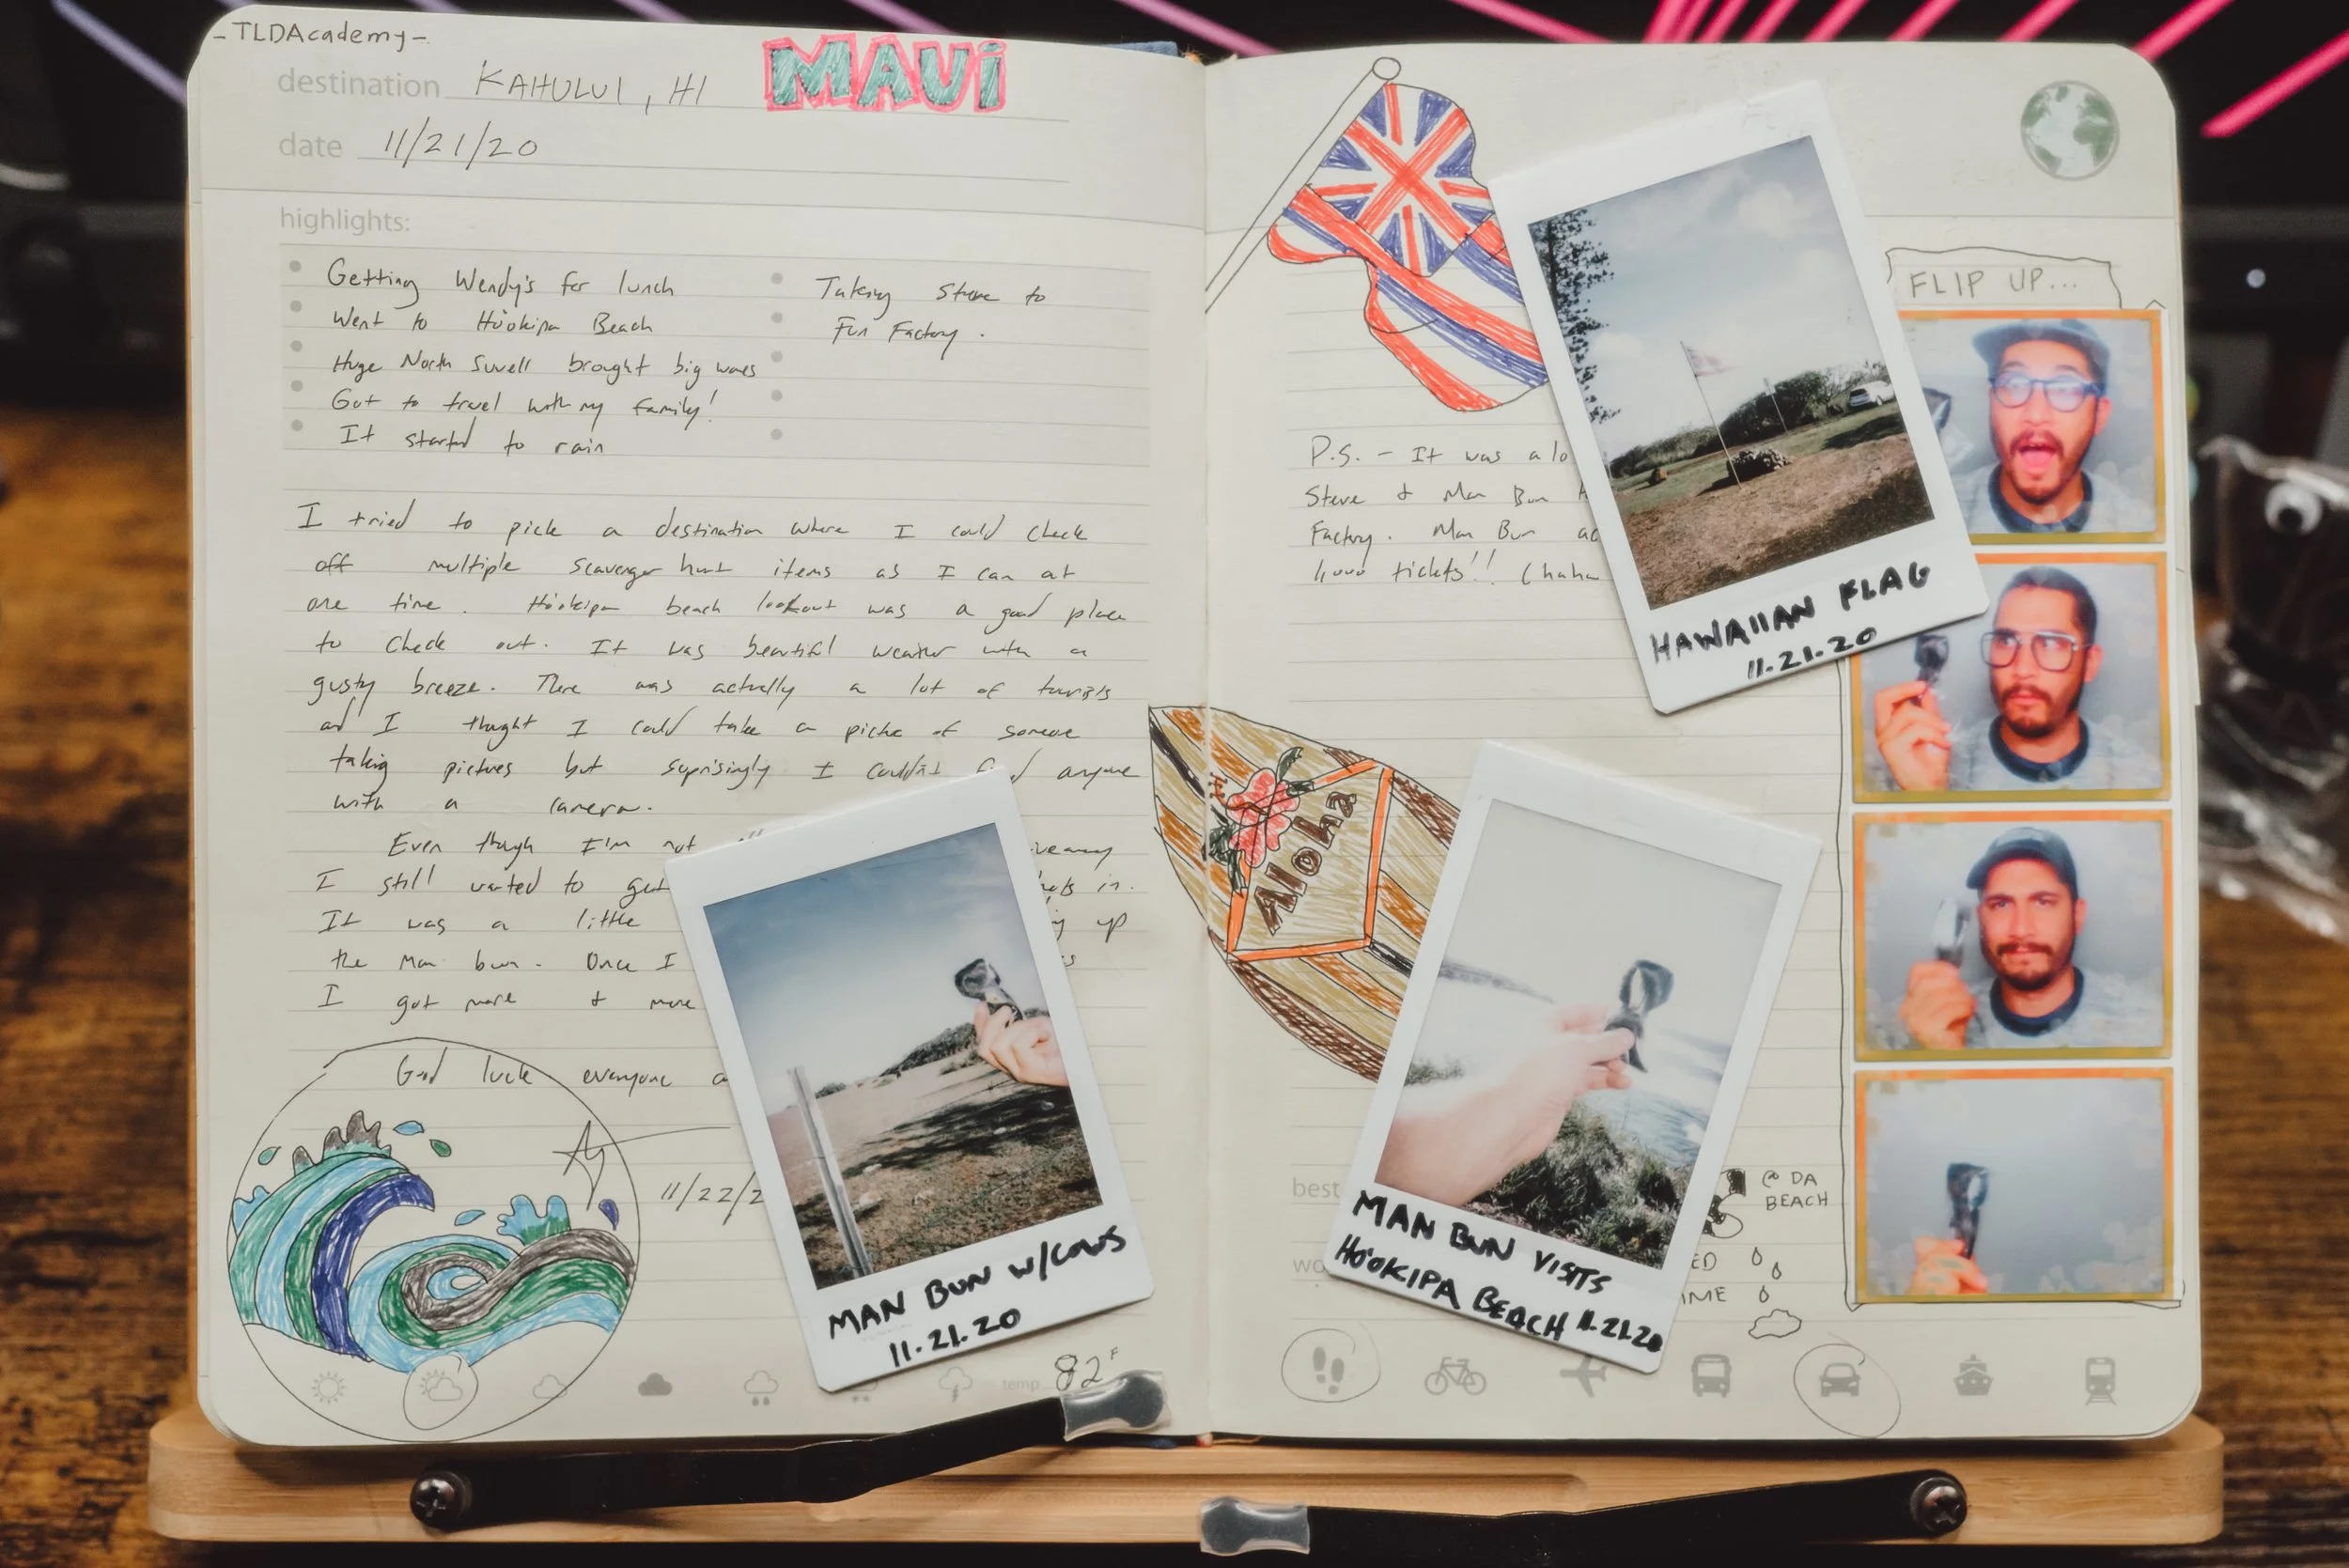 -TLDAcademy-
destination KAHULUI, HI
MAUI
date 11/21/20
highlights:
Getting Wendy's for lunch
Went to Ho'okipa Beach
Huge North Swell brought big waves
Got to travel with my family!
It started to rain
Taking Steve to
Fun Factory.
I tried to pick a destination where I could check
off multiple scavenger hunt items as I can at
one time. Ho'okipa beach lookout was a good place
to check out. It was beautiful weather with a
gusty breeze. There was actually a lot of tourists
and I thought I could take a picture of someone
taking pictures but suprisingly I couldn't anyone
with a camera.
Even though I'm not
I still wanted to get in.
It was a little up
the Man bun. Once I
I got more & more
Good luck everyone
11/22/2
temp 82°F
MAN BUN W/COWS
11.21.20
P.S. - It was a lo
Steve & Man Bun
Factory. Man Bun
1,000 tickets!! (haha
HAWAIIAN FLAG
11.21.20
FLIP UP...
Aloha
MAN BUN VISITS
HO'OKIPA BEACH 11.21.20
best
@ DA
BEACH
wo
ED
IME